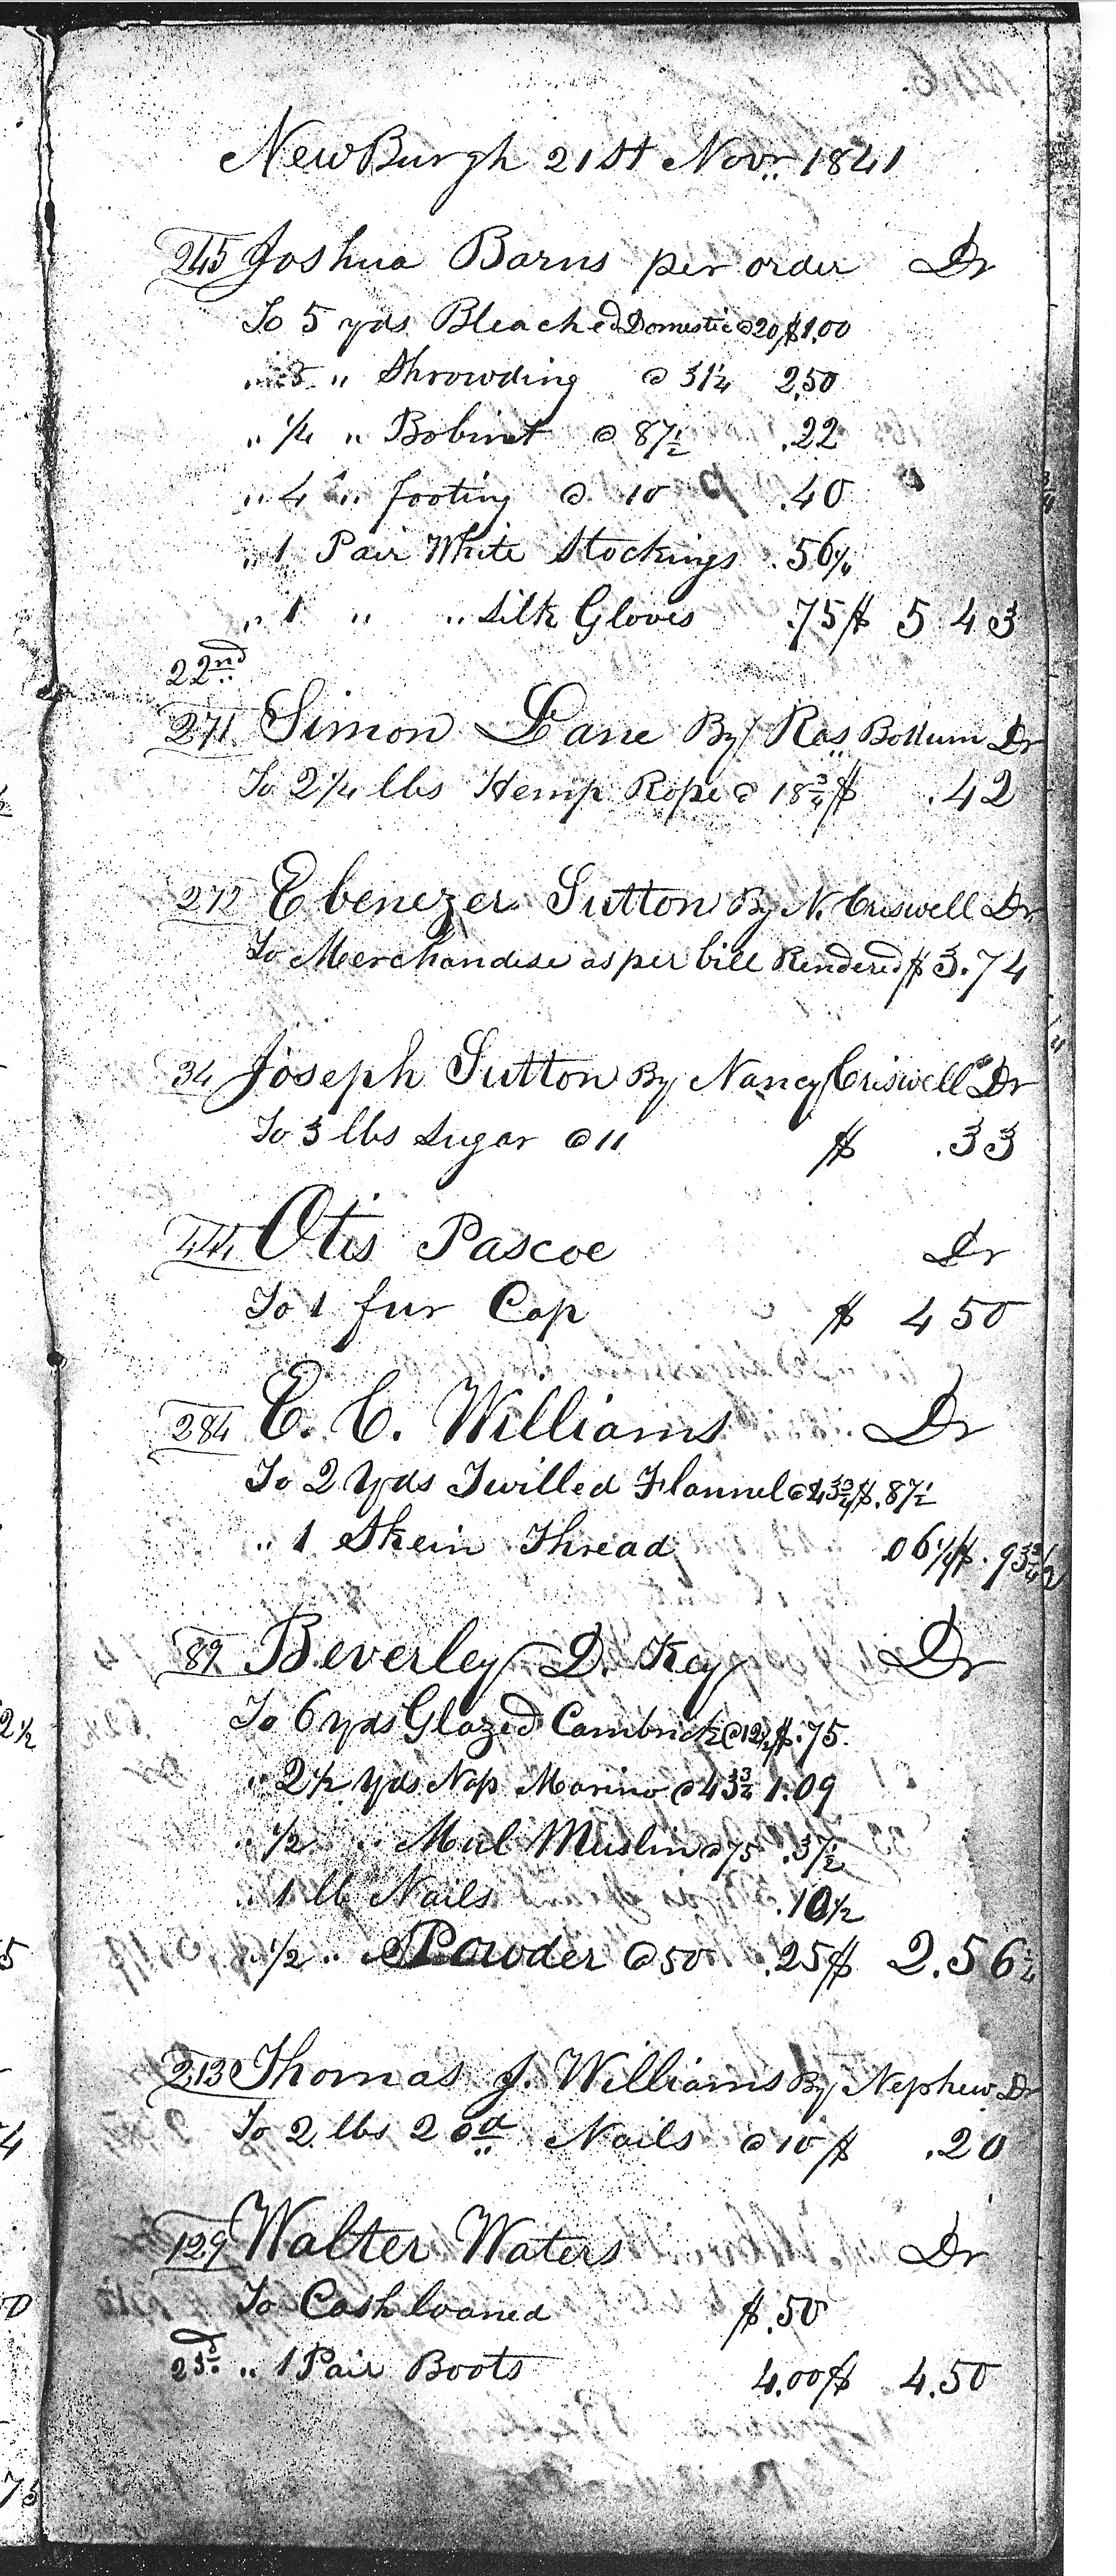 NewBurgh 21st Novr 1841
245 Joshua Barns per order Dr
To 5 yds Bleached Domestic @ 20 $1.00
" 8 " Shrowding @ 31¼ 2.50
" ¼ " Bobinet @ 87½ .22
" 4 " footing @ 10 .40
" 1 Pair White Stockings .56¼
" 1 " " Silk Gloves .75 $ 5 43
22nd
271 Simon Lane By Ras Bottum Dr
To 2¼ lbs Hemp Rope @ 18¾ $ .42
272 Ebenezer Sutton By N. Criswell Dr
To Merchandise as per bill Rendered $ 3.74
34 Joseph Sutton By Nancy Criswell Dr
To 3 lbs Sugar @ 11 $ .33
Otis Pascoe Dr
To 1 fur Cap $ 4 50
284 C. C. Williams Dr
To 2 Yds Twilled Flannel @ 43¾ $ .87½
" 1 Skein Thread .06¼ $ .93¾
89 Beverley D. Key Dr
To 6 yds Glazed Cambrick @ 12½ $ .75
" 2½ yds Nap Marino @ 43¾ 1.09
" ½ " Mul Muslin @ 75 .37½
" 1 lb Nails .10½
" ½ " Powder @ 50 .25 $ 2.56
213 Thomas J. Williams By Nephew Dr
To 2 lbs 20d Nails @ 10 $ .20
129 Walter Waters Dr
To Cash loaned $ .50
23d " 1 Pair Boots 4.00 $ 4.50